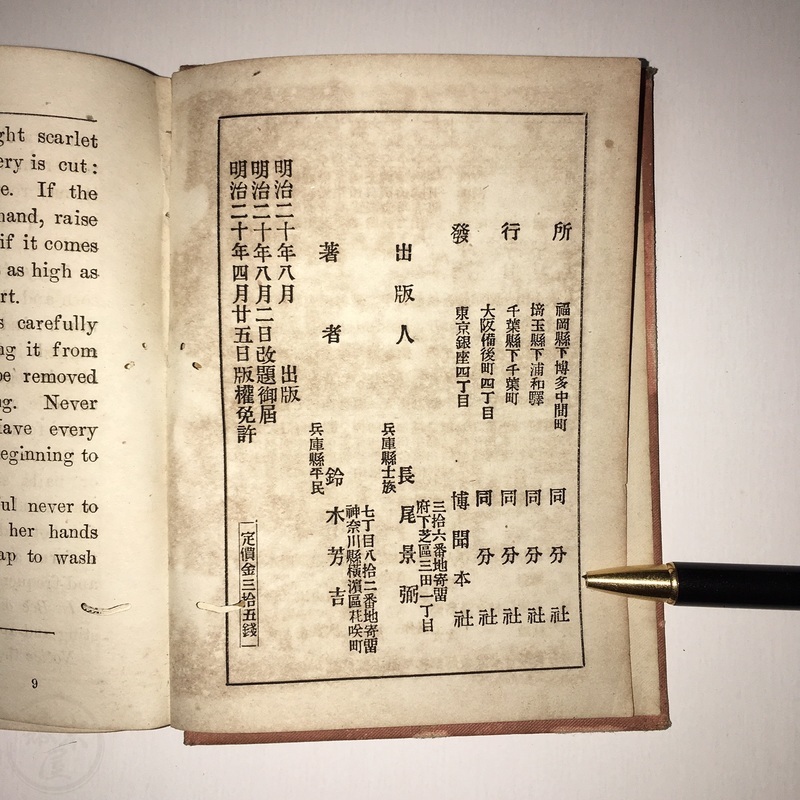 ght scarlet
ery is cut:
e. If the
hand, raise
if it comes
as high as
rt.
s carefully
ng it from
be removed
ng. Never
Have every
eginning to
ul never to
her hands
ap to wash
9
明治二十年四月廿五日版權免許
明治二十年八月二日改題御屆
明治二十年八月 出版
定價金三拾五錢
著者
兵庫縣平民
鈴木芳吉
神奈川縣橫濱區花咲町
七丁目八拾二番地寄留
出版人
兵庫縣士族
長尾景弼
府下芝區三田一丁目
三拾六番地寄留
發行所
東京銀座四丁目 博聞本社
大阪備後町四丁目 同分社
千葉縣下千葉町 同分社
埼玉縣下浦和驛 同分社
福岡縣下博多中間町 同分社